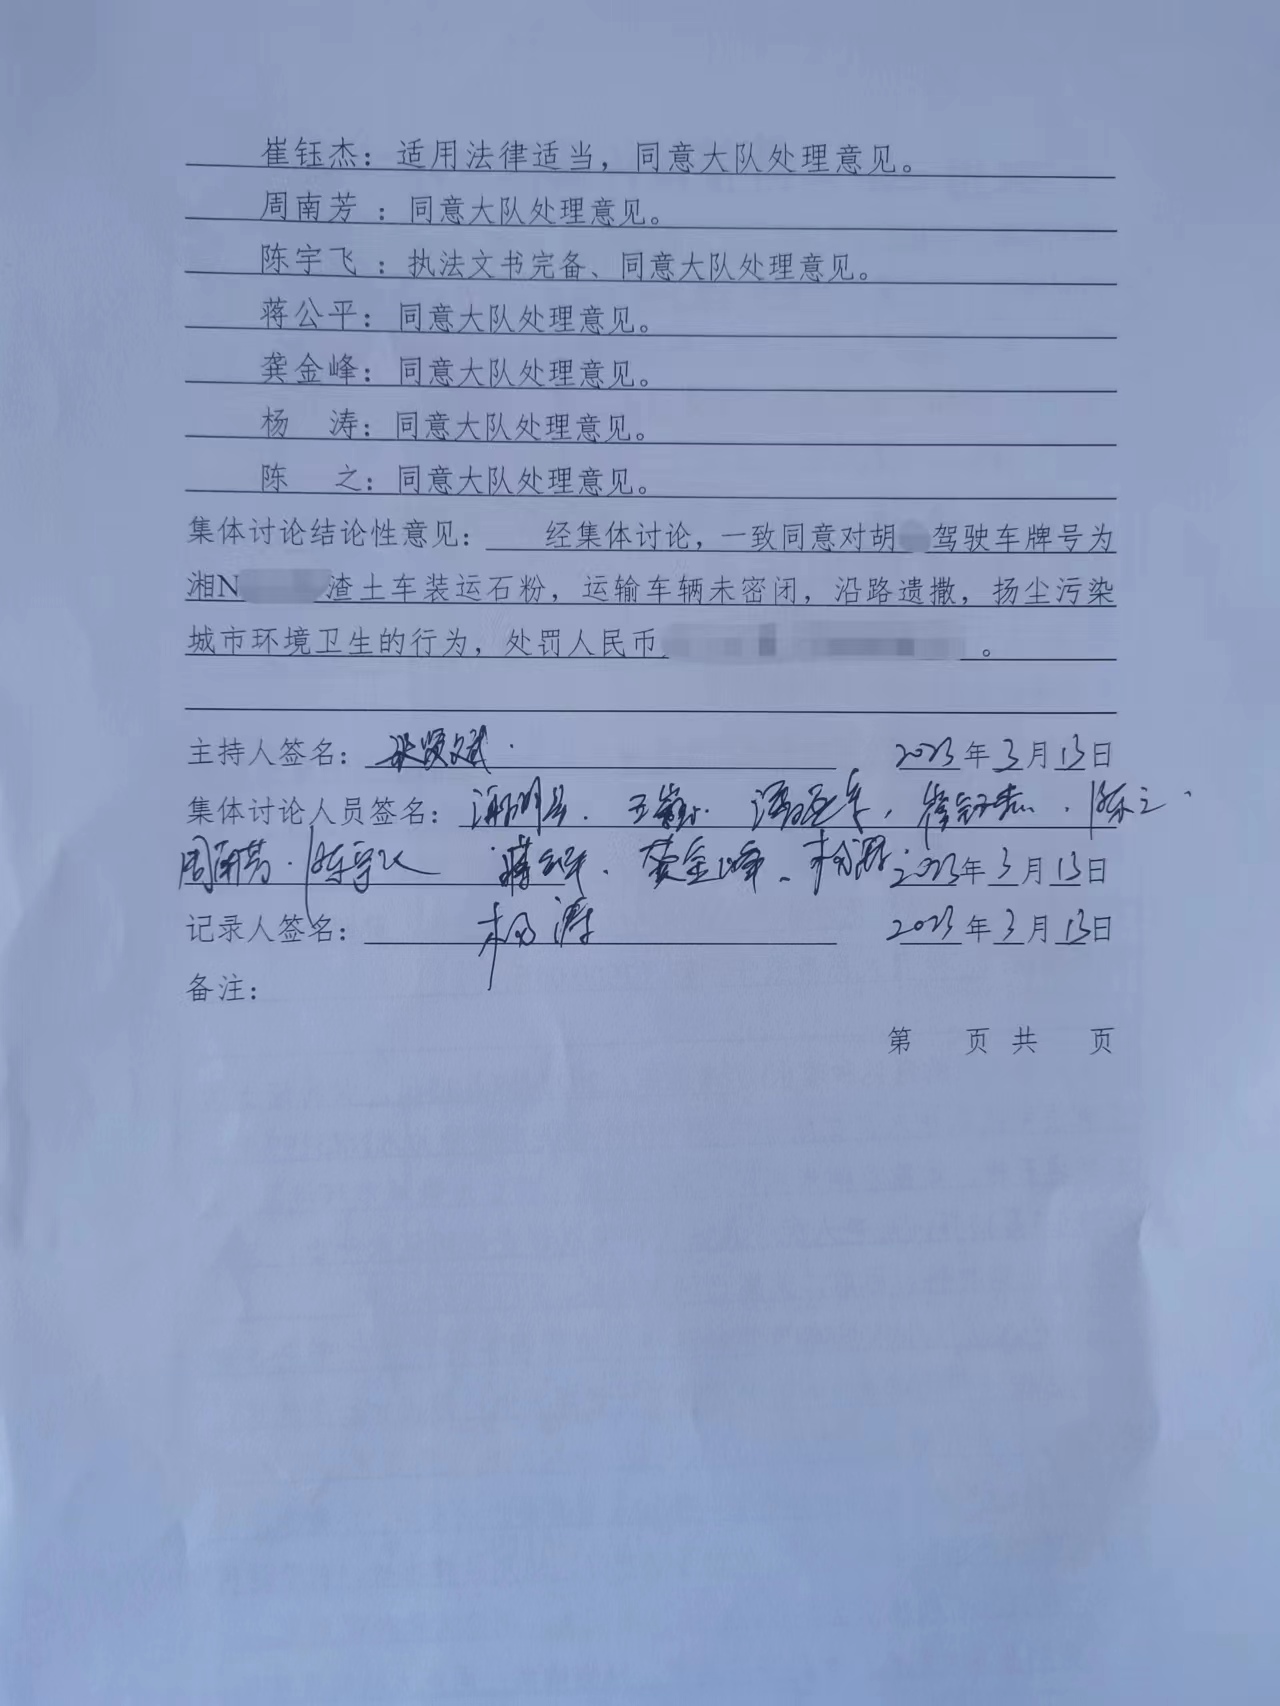 崔钰杰：适用法律适当，同意大队处理意见。
周南芳 ：同意大队处理意见。
陈宇飞 ：执法文书完备、同意大队处理意见。
蒋公平：同意大队处理意见。
龚金峰：同意大队处理意见。
杨　涛：同意大队处理意见。
陈　之：同意大队处理意见。
集体讨论结论性意见：　经集体讨论，一致同意对胡 驾驶车牌号为
湘N 渣土车装运石粉，运输车辆未密闭，沿路遗撒，扬尘污染
城市环境卫生的行为，处罚人民币 。
主持人签名： 2023年3月13日
集体讨论人员签名： 崔钰杰．陈之．
周南芳．陈宇飞 蒋公平．龚金峰、杨涛．2023年3月13日
记录人签名：杨涛 2023年3月13日
备注：
第　页 共　页